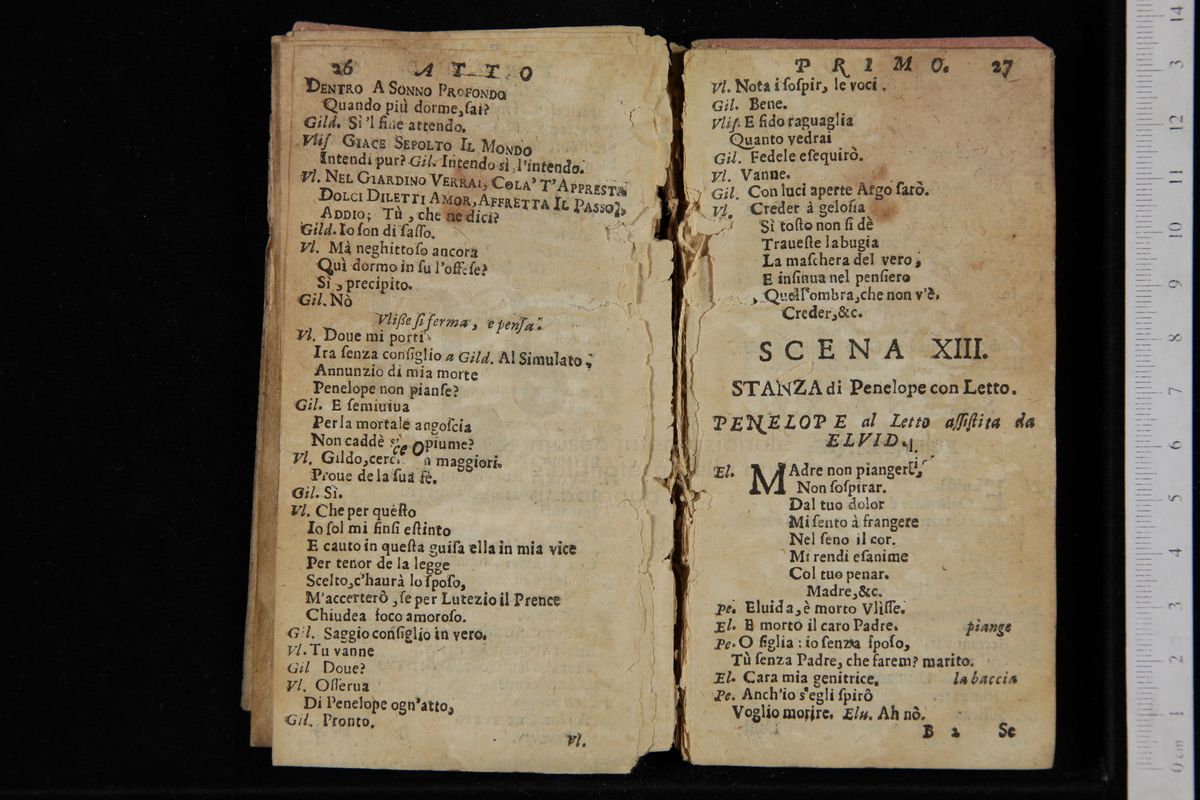 26 ATTO
DENTRO A SONNO PROFONDO
Quando più dorme, sai?
Gild. Sì 'l fine attendo.
Vliſ GIACE SEPOLTO IL MONDO
Intendi pur? Gil. Intendo sì, l'intendo.
Vl. NEL GIARDINO VERRAI, COLA' T'APPRESTA
DOLCI DILETTI AMOR, AFFRETTA IL PASSO,
ADDIO; Tù, che ne dici?
Gild. Io ſon di ſaſſo.
Vl. Mà neghittoſo ancora
Quì dormo in ſu l'offeſe?
Sì, precipito.
Gil. Nò
Vliſſe ſi ferma, e penſa.
Vl. Doue mi porti
Ira ſenza conſiglio a Gild. Al Simulato,
Annunzio di mia morte
Penelope non pianſe?
Gil. E ſemiuiua
Per la mortale angoſcia
Non caddè piume?
Vl. Gildo, maggiori
Proue de la ſua fè.
Gil. Sì.
Vl. Che per queſto
Io ſol mi finſi eſtinto
E cauto in queſta guiſa ella in mia vice
Per tenor de la legge
Scelto, c'haurà lo ſpoſo,
M'accerterò, ſe per Lutezio il Prence
Chiudea foco amoroſo.
Gil. Saggio conſiglio in vero.
Vl. Tu vanne
Gil Doue?
Vl. Oſſerua
Di Penelope ogn'atto,
Gil. Pronto.
Vl.
PRIMO. 27
Vl. Nota i ſoſpir, le voci.
Gil. Bene.
Vliſ. E fido raguaglia
Quanto vedrai
Gil. Fedele eſequirò.
Vl. Vanne.
Gil. Con luci aperte Argo ſarò.
Vl. Creder à geloſia
Sì toſto non ſi dè
Traueſte la bugia
La maſchera del vero,
E inſinua nel penſiero
Quell'ombra, che non v'è.
Creder, &c.
SCENA XIII.
STANZA di Penelope con Letto.
PENELOPE al Letto aſſiſtita da
ELVID.
El. MAdre non piangere,
Non ſoſpirar.
Dal tuo dolor
Mi ſento à frangere
Nel ſeno il cor.
Mi rendi eſanime
Col tuo penar.
Madre, &c.
Pe. Eluida, è morto Vliſſe.
El. E morto il caro Padre. piange
Pe. O figlia: io ſenza ſpoſo,
Tù ſenza Padre, che farem? marito.
El. Cara mia genitrice. la baccia
Pe. Anch'io s'egli ſpirò
Voglio morire. Elu. Ah nò.
B 2 Se